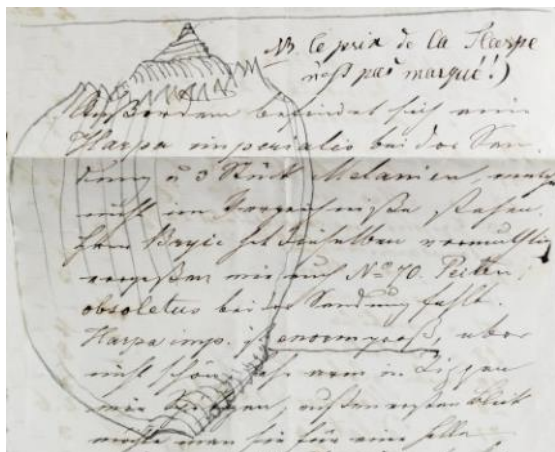 NB le prix de la Harpe
n'est pas marqué!)
Außerdem befindet sich eine
Harpa imperialis bei der Sen-
dung u 3 Stück Melanien, welche
nicht im Verzeichniße stehen.
Herr Bryce hat dieselben vermuthlich
vergeßen wie auch No 70. Pecten
obsoletus bei der Sendung fehlt.
Harpa imp. ist enorm groß, aber
nicht schön, sehr arm in
wie, auf den ersten Blick
möchte man sie für eine helle